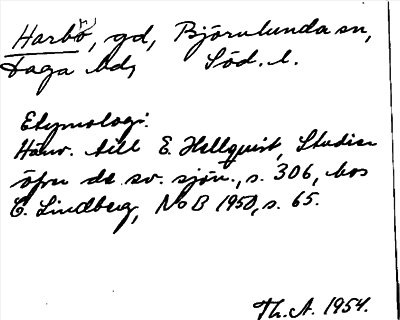 Harbo(n), gd, Björnlunda sn,
Daga hd, Söd. l.
Etymologi.
Hänv. till E. Hellquist, Studier
öfver de sv. sjön., s. 306, hos
C. Lindberg, NoB 1950, s. 65.
Th. A. 1954.